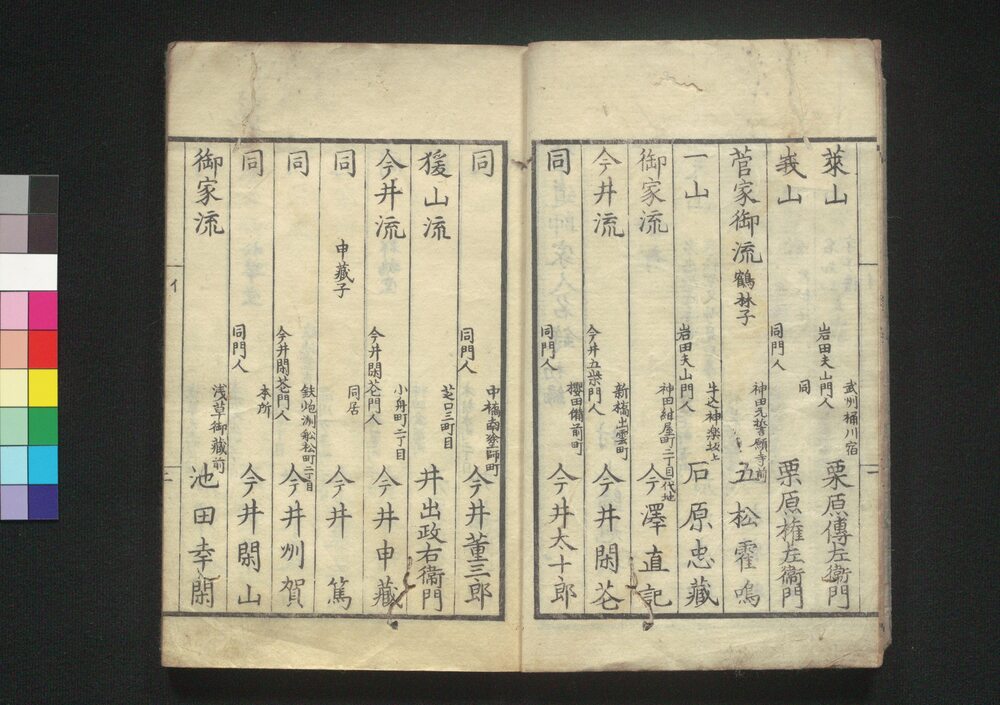 萊山 岩田夫山門人 武州桶川宿 栗原傳左衛門
峩山 同門人 同 栗原権左衛門
菅家御流 鶴林子 神田元誓願寺前 五松霍鳴
一山 岩田夫山門人 牛込神楽坂上 石原忠藏
御家流 神田紺屋町二丁目代地 今澤直記
今井流 今井五柴門人 新橋出雲町 今井閑苍
同 同門人 櫻田備前町 今井太十郎
同 同門人 中橋南塗師町 今井董三郎
猨山流 芝口三町目 井出政右衛門
今井流 今井閑苍門人 小舟町二丁目 今井申藏
同 申藏子 同居 今井篤
同 今井閑苍門人 鉄炮洲舩松町二丁目 今井州賀
同 同門人 本所 今井閑山
御家流 浅草御藏前 池田幸閑
イ
二